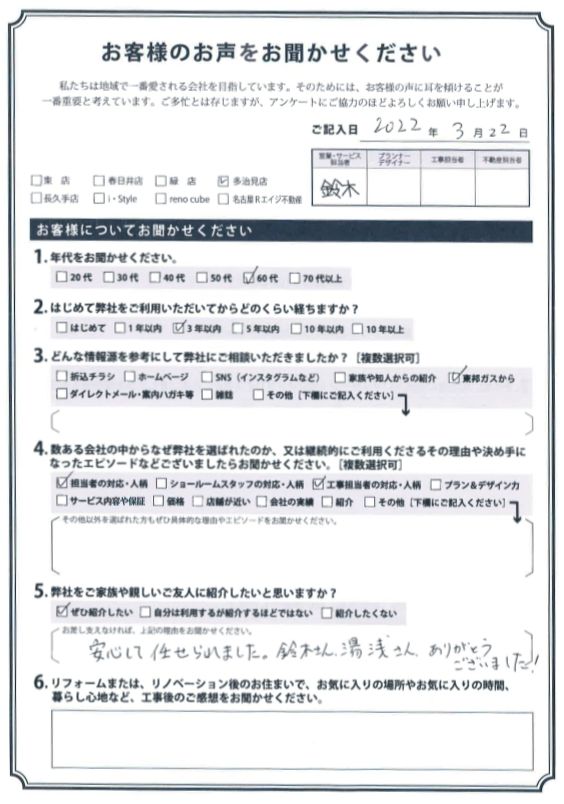 お客様のお声をお聞かせください
私たちは地域で一番愛される会社を目指しています。そのためには、お客様の声に耳を傾けることが
一番重要と考えています。ご多忙とは存じますが、アンケートにご協力のほどよろしくお願い申し上げます。
ご記入日 2022 年 3 月 22 日
営業・サービス担当者 プランナーデザイナー 工事担当者 不動産担当者
鈴木
□東 店 □春日井店 □緑 店 ☑多治見店
□長久手店 □i・Style □reno cube □名古屋Rエイジ不動産
お客様についてお聞かせください
1. 年代をお聞かせください。
□20代 □30代 □40代 □50代 ☑60代 □70代以上
2. はじめて弊社をご利用いただいてからどのくらい経ちますか?
□はじめて □1年以内 ☑3年以内 □5年以内 □10年以内 □10年以上
3. どんな情報源を参考にして弊社にご相談いただきましたか?[複数選択可]
□折込チラシ □ホームページ □SNS(インスタグラムなど) □家族や知人からの紹介 ☑東邦ガスから
□ダイレクトメール・案内ハガキ等 □雑誌 □その他[下欄にご記入ください]
4. 数ある会社の中からなぜ弊社を選ばれたのか、又は継続的にご利用くださるその理由や決め手に
なったエピソードなどございましたらお聞かせください。[複数選択可]
☑担当者の対応・人柄 □ショールームスタッフの対応・人柄 ☑工事担当者の対応・人柄 □プラン&デザイン力
□サービス内容や保証 □価格 □店舗が近い □会社の実績 □紹介 □その他[下欄にご記入ください]
その他以外を選ばれた方もぜひ具体的な理由やエピソードをお聞かせください。
5. 弊社をご家族や親しいご友人に紹介したいと思いますか?
☑ぜひ紹介したい □自分は利用するが紹介するほどではない □紹介したくない
お差し支えなければ、上記の理由をお聞かせください。
安心して任せられました。鈴木さん、湯浅さん、ありがとう
ございました!
6. リフォームまたは、リノベーション後のお住まいで、お気に入りの場所やお気に入りの時間、
暮らし心地など、工事後のご感想をお聞かせください。